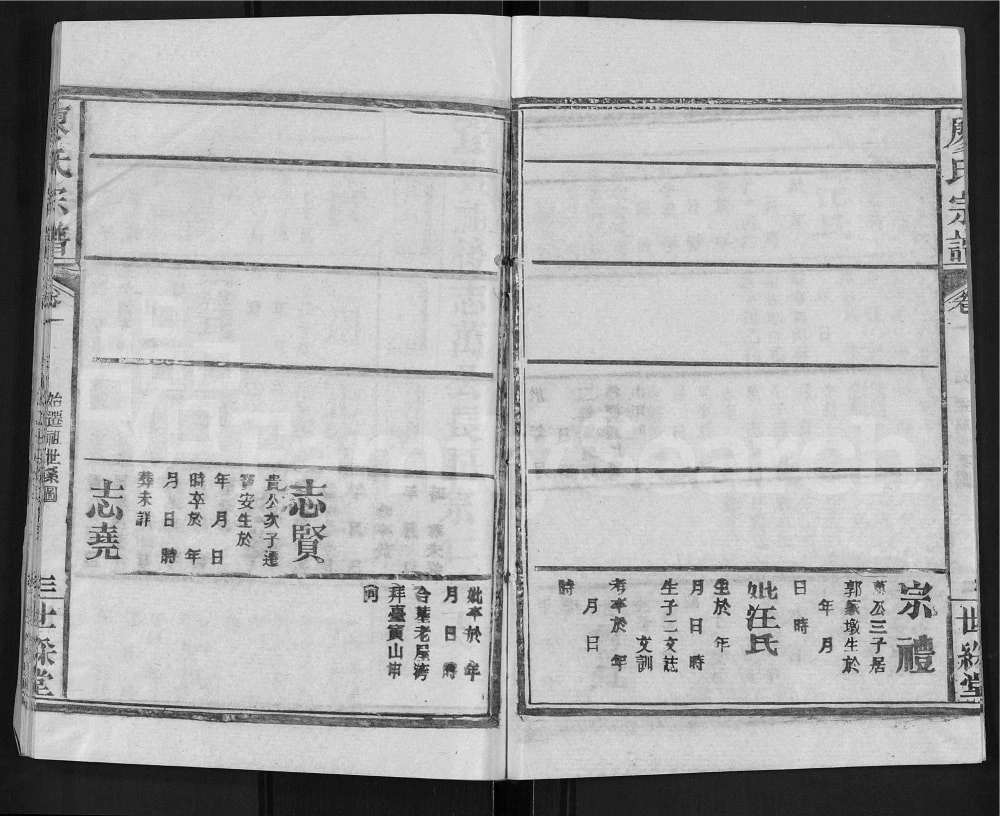 廖氏宗譜
卷一
三世綵堂
宗禮
萬公三子居
郭家墩生於
年 月
日 時
妣汪氏
生於 年
月 日 時
生子二文誌
文訓
考卒於 年
月 日
時
妣卒於 年
月 日 時
合葬老屋湾
拜臺簣山申
向
志賢
貴公次子遷
寶安生於
年 月 日
時卒於 年
月 日 時
葬未詳
志堯
廖氏宗譜
卷一
始遷祖世系圖
三世綵堂